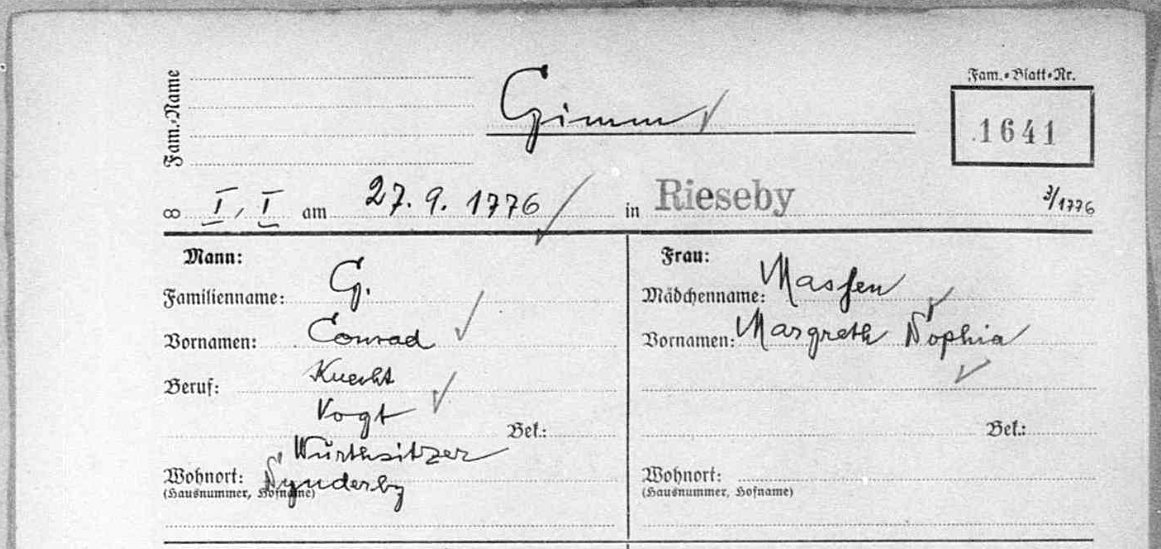 Fam.-Name
Gimm
Fam.-Blatt-Nr.
1641
∞ I, I am 27. 9. 1776 in Rieseby 3/1776
Mann:
Familienname: G.
Vornamen: Conrad
Beruf: Knecht
Vogt
Bek.:
Würthsitzer
Wohnort: Synderby
(Hausnummer, Hofname)
Frau:
Mädchenname: Massen
Vornamen: Margreth Sophia
Bek.:
Wohnort:
(Hausnummer, Hofname)